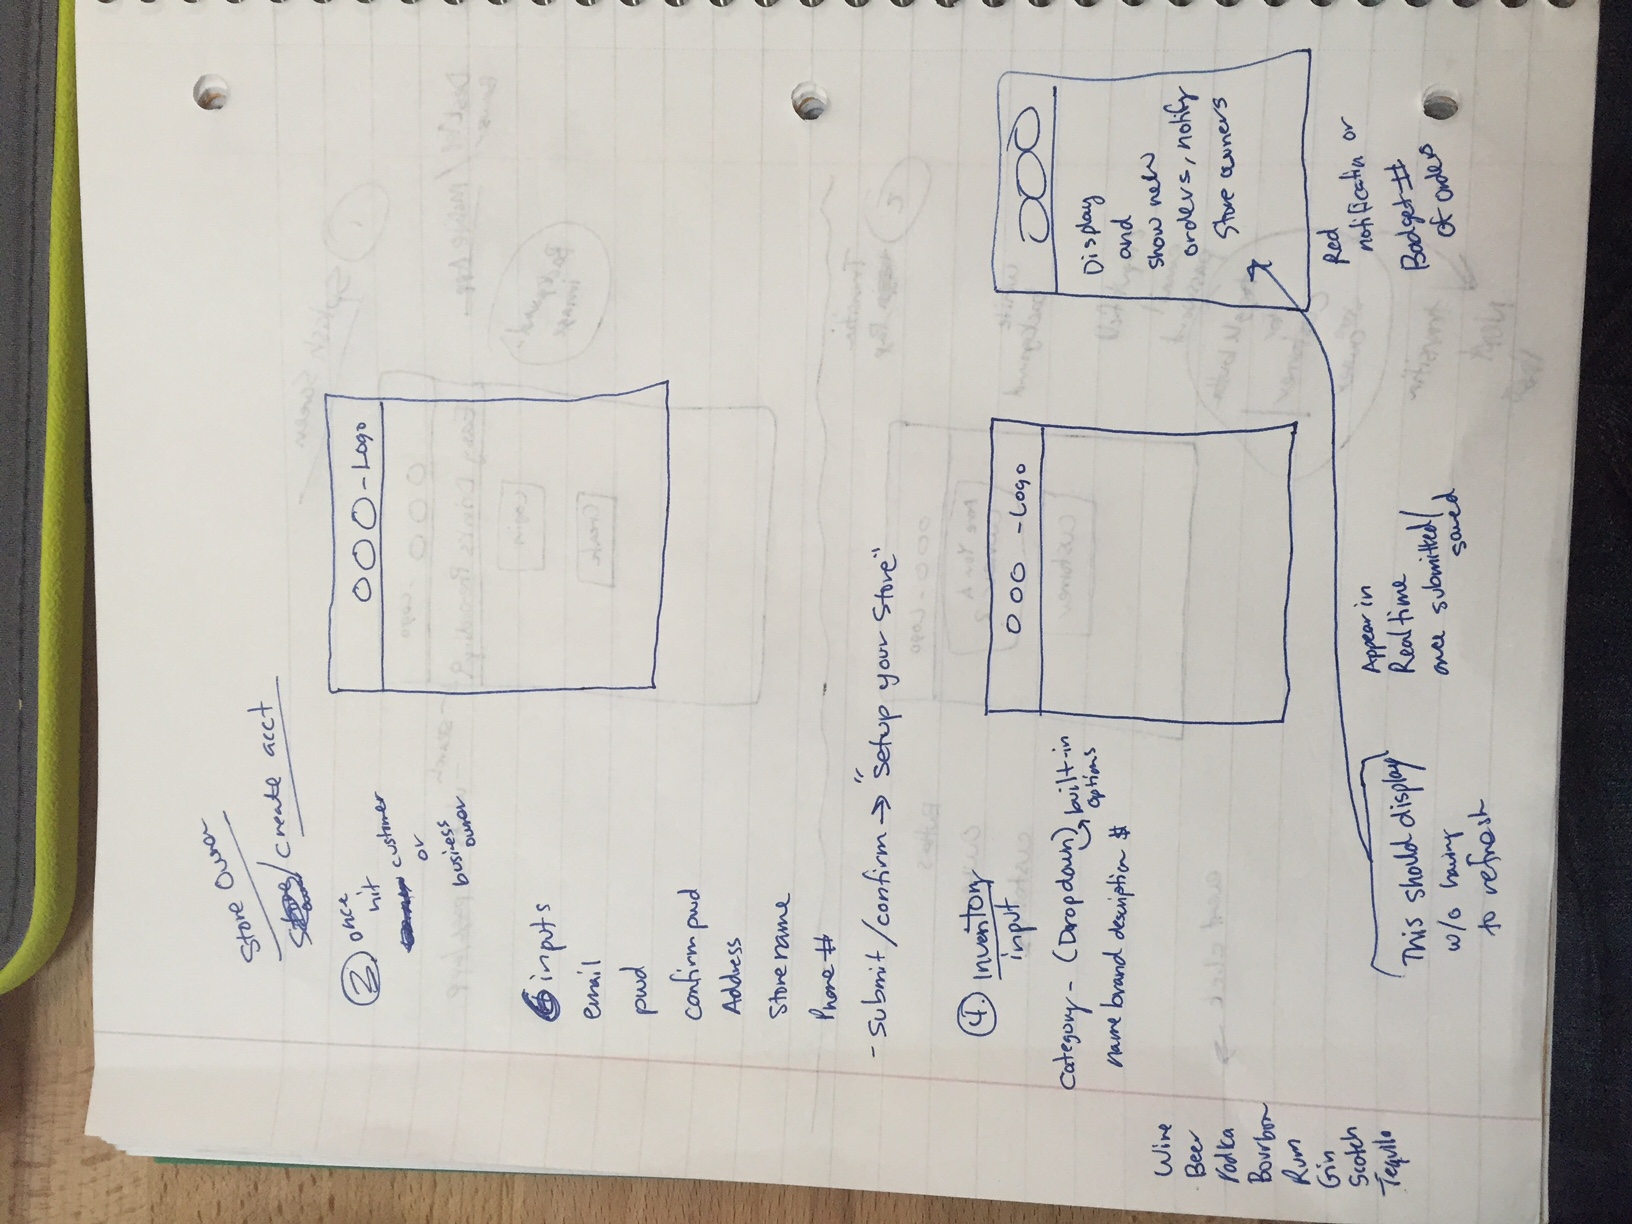 Store Owner
/create acct
3. once
hit
customer
or
business
owner
000-Logo
6 inputs
email
pwd
confirm pwd
Address
Store name
Phone #
- Submit/confirm → "setup your Store"
4. Inventory
input
000 -Logo
000
Category - (Dropdown) built-in
options
name brand description $
Wine
Beer
Vodka
Bourbon
Rum
Gin
Scotch
Tequila
Display
and
show new
orders, notify
Store owners
This should display
w/o having
to refresh
Appear in
Real time
once submitted/
saved
Red
notification or
Badget #
of orders